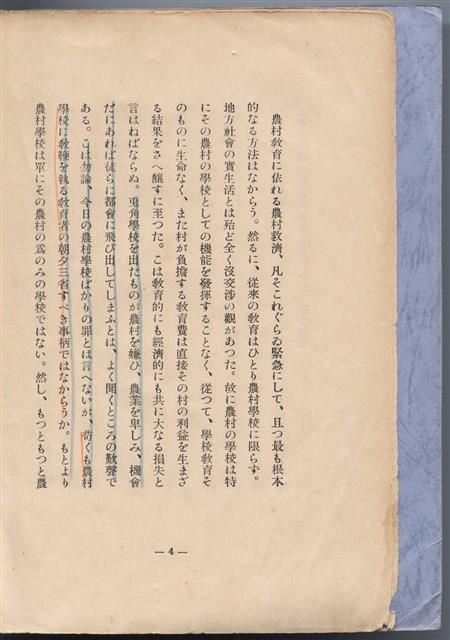 農村敎育に依れる農村救濟、凡そこれぐらゐ緊急にして、且つ最も根本
的なる方法はなからう。然るに、從來の敎育はひとり農村學校に限らず。
地方社會の實生活とは殆ど全く沒交渉の觀があつた。故に農村の學校は特
にその農村の學校としての機能を發揮することなく、從つて、學校敎育そ
のものに生命なく、また村が負擔する敎育費は直接その村の利益を生まざ
る結果をさへ釀すに至つた。こは敎育的にも經濟的にも共に大なる損失と
言はねばならぬ。兎角學校を出たものが農村を嫌ひ、農業を卑しみ、機會
だにあれば徒らに都會に飛び出してしまふとは、よく聞くところの歎聲で
ある。こは勿論、今日の農村學校ばかりの罪とは言へないが、苟くも農村
學校に敎鞭を執る敎育者の朝夕三省すべき事柄ではなからうか。もとより
農村學校は單にその農村の爲のみの學校ではない。然し、もつともつと農
— 4 —